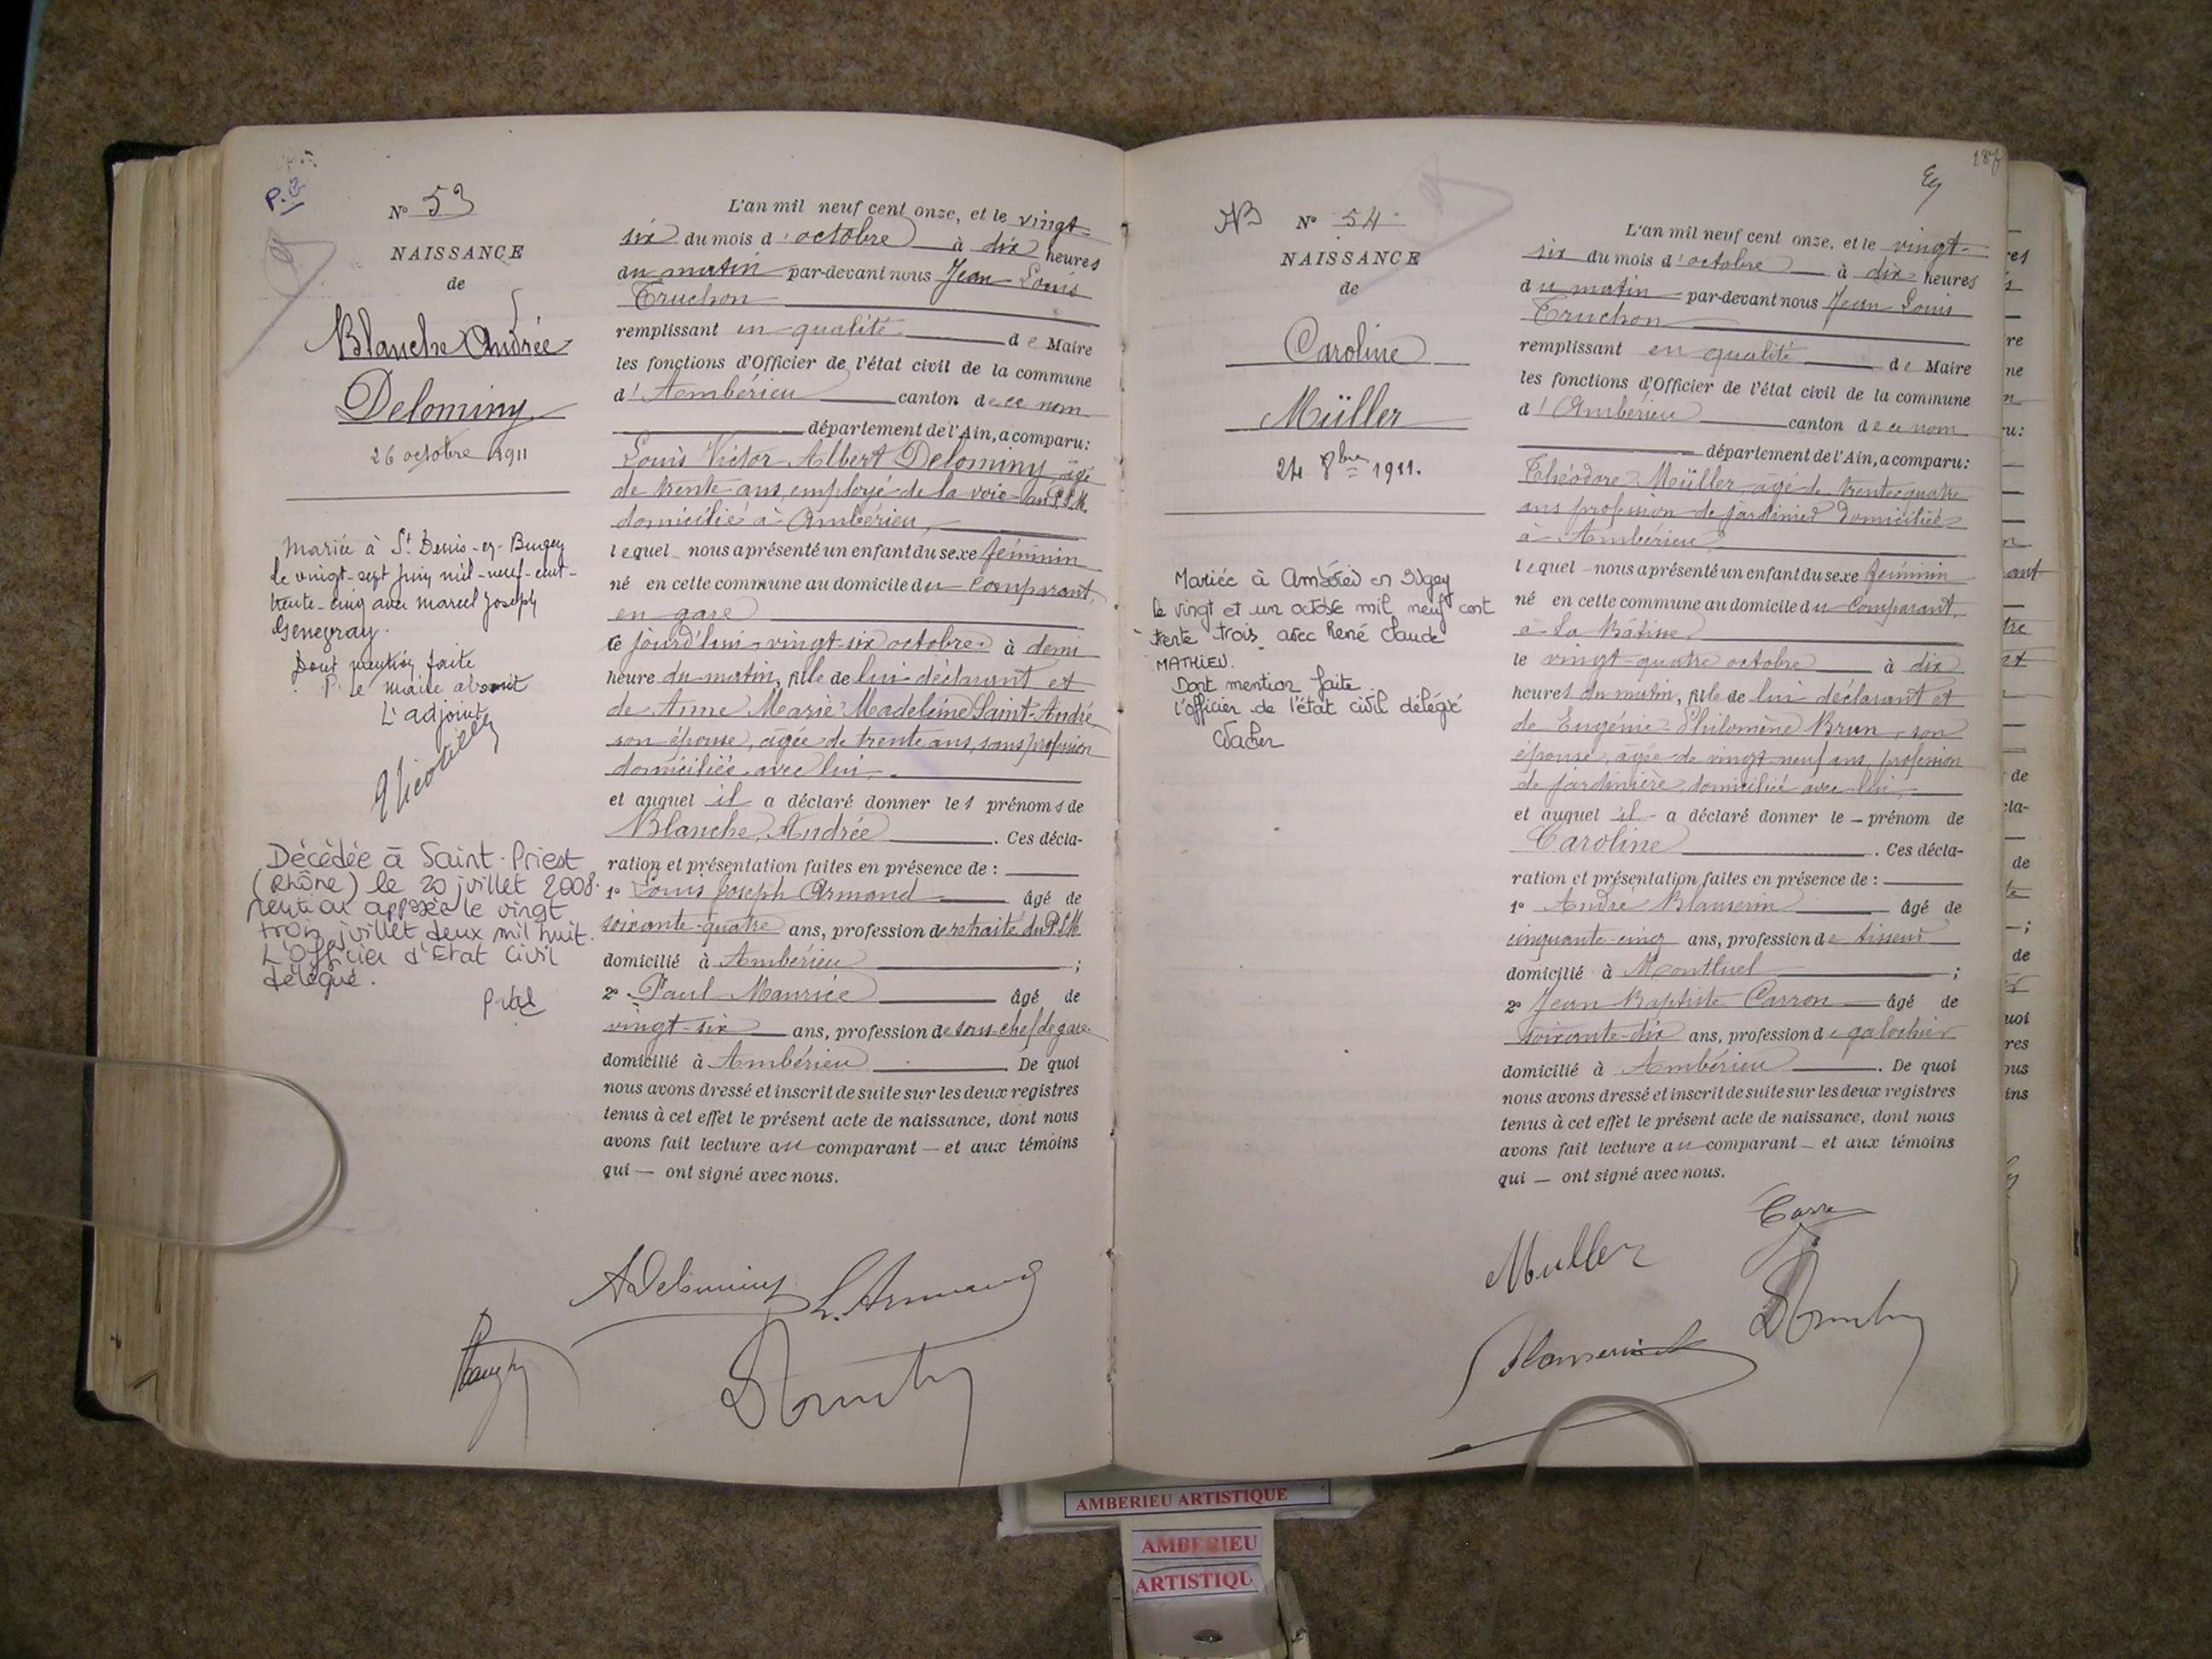 P.G
N° 53
NAISSANCE
de
Blanche Andrée
Delominy
26 octobre 1911
Mariée à St Denis-en-Bugey
le vingt-sept juin mil-neuf-cent-
trente-cinq avec Marcel Joseph
Genegray.
Dont mention faite
P. le Maire absent
L'adjoint
Décédée à Saint-Priest
(Rhône) le 20 juillet 2008.
Mention apposée le vingt
trois juillet deux mil huit.
L'Officier d'Etat Civil
délégué.
L'an mil neuf cent onze, et le vingt-
six du mois d'octobre à dix heures
du matin par-devant nous Jean Louis
Truchon
remplissant en qualité de Maire
les fonctions d'Officier de l'état civil de la commune
d'Ambérieu canton de ce nom
département de l'Ain, a comparu:
Louis Victor Albert Delominy âgé
de trente ans, employé de la voie au P.L.M.
domicilié à Ambérieu,
lequel nous a présenté un enfant du sexe féminin
né en cette commune au domicile du comparant,
en gare
ce jourd'hui vingt-six octobre à demi
heure du matin, fille de lui déclarant et
de Anne Marie Madeleine Saint-André
son épouse, âgée de trente ans, sans profession
domiciliée avec lui,
et auquel il a déclaré donner les prénoms de
Blanche, Andrée . Ces décla-
ration et présentation faites en présence de :
1° Louis Joseph Armand âgé de
soixante-quatre ans, profession de retraité du P.L.M.
domicilié à Ambérieu ;
2° Paul Maurice âgé de
vingt-six ans, profession de sous-chef de gare
domicilié à Ambérieu . De quoi
nous avons dressé et inscrit de suite sur les deux registres
tenus à cet effet le présent acte de naissance, dont nous
avons fait lecture au comparant — et aux témoins
qui — ont signé avec nous.
ADelominy L. Armand
187
N° 54
NAISSANCE
de
Caroline
Müller
24 8bre 1911.
Mariée à Ambérieu en Bugey
le vingt et un octobre mil neuf cent
trente trois avec René Claude
MATHIEU.
Dont mention faite
l'officier de l'état civil délégué
L'an mil neuf cent onze, et le vingt-
six du mois d'octobre à dix heures
du matin par-devant nous Jean Louis
Truchon
remplissant en qualité de Maire
les fonctions d'Officier de l'état civil de la commune
d'Ambérieu canton de ce nom
département de l'Ain, a comparu:
Théodore Müller, âgé de trente-quatre
ans profession de jardinier domicilié
à Ambérieu
lequel nous a présenté un enfant du sexe féminin
né en cette commune au domicile du comparant,
à la Bâtisse,
le vingt-quatre octobre à dix
heures du matin, fille de lui déclarant et
de Eugénie Philomène Brun, son
épouse, âgée de vingt-neuf ans, profession
de jardinière, domiciliée avec lui,
et auquel il a déclaré donner le — prénom de
Caroline . Ces décla-
ration et présentation faites en présence de :
1° André âgé de
cinquante-cinq ans, profession de tisseur
domicilié à Montluel ;
2° Jean Baptiste Carron âgé de
soixante-dix ans, profession de galochier
domicilié à Ambérieu . De quoi
nous avons dressé et inscrit de suite sur les deux registres
tenus à cet effet le présent acte de naissance, dont nous
avons fait lecture au comparant — et aux témoins
qui — ont signé avec nous.
Muller
AMBERIEU ARTISTIQUE
AMBERIEU
ARTISTIQU